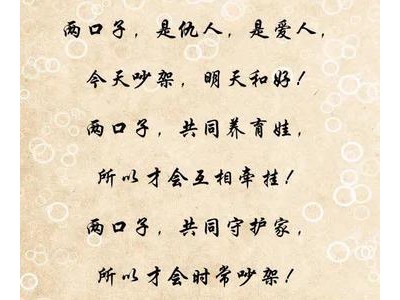 两口子，是仇人，是爱人，
今天吵架，明天和好！
两口子，共同养育娃，
所以才会互相牵挂！
两口子，共同守护家，
所以才会时常吵架！